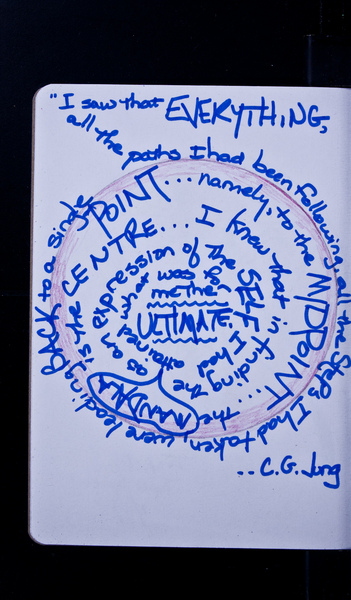 "I saw that EVERYTHING,
all the paths I had been following, all the steps I had taken, were leading BACK to a single
POINT... namely, to the MIDPOINT... the MANDALA is the CENTRE... I knew that in finding the
as an expression of the SELF I had attained what was for
me then
ULTIMATE.
-- C.G. Jung